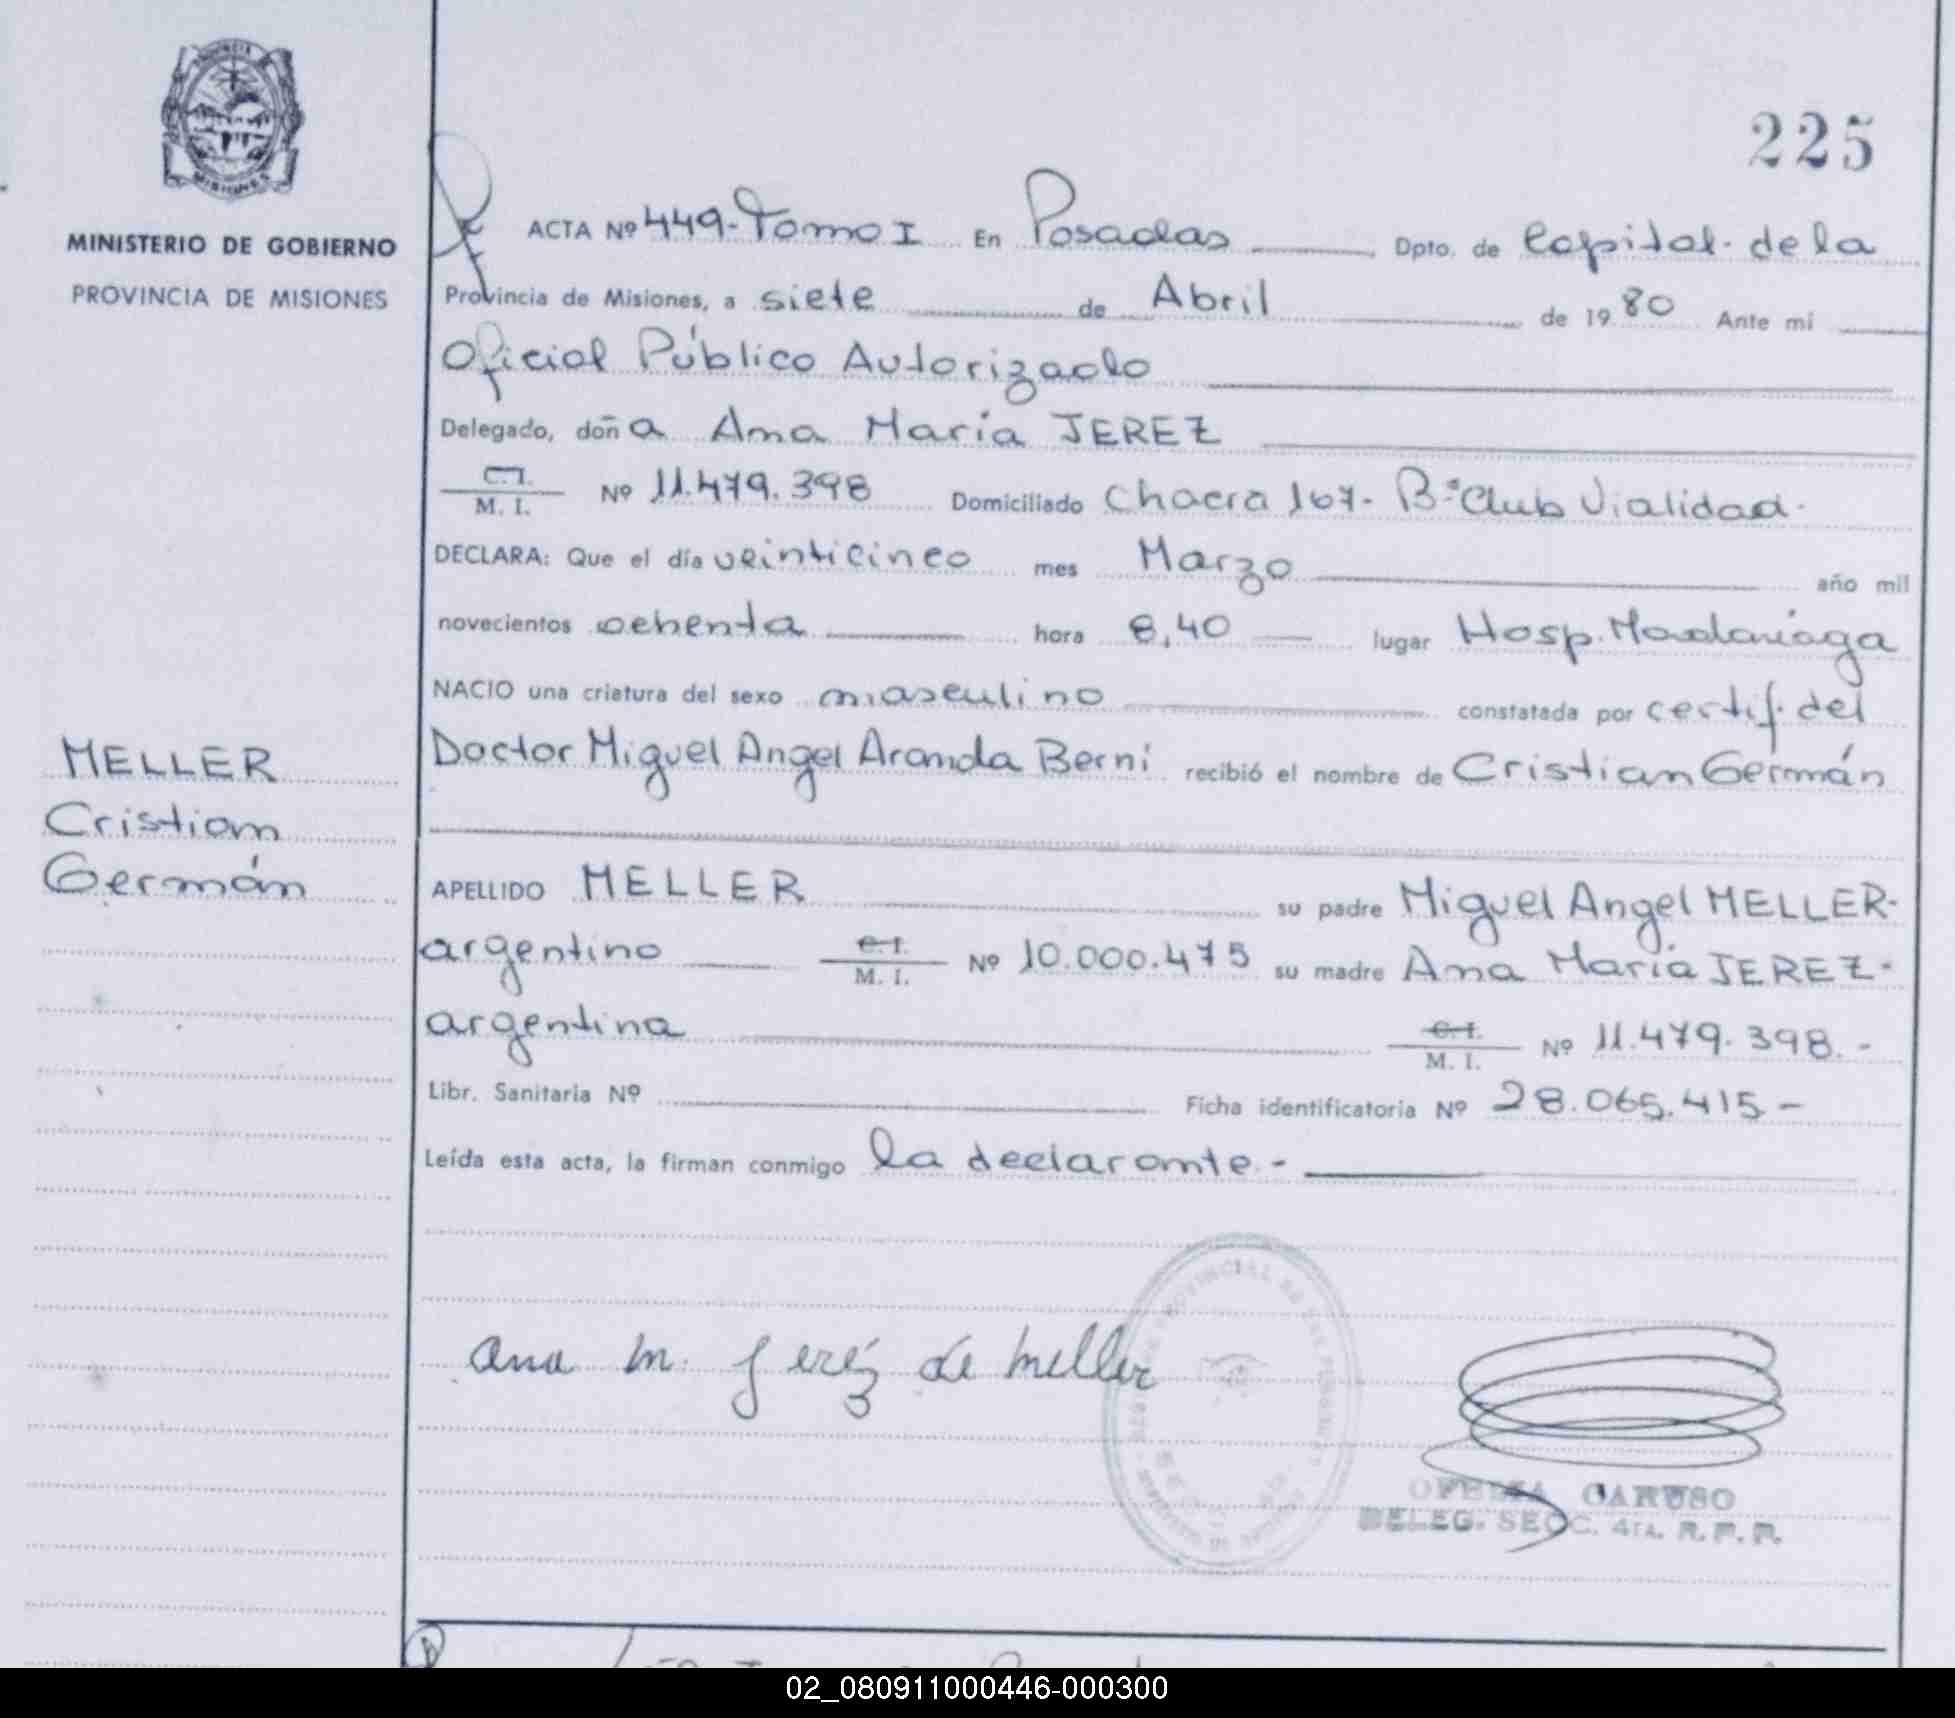 225
MINISTERIO DE GOBIERNO
PROVINCIA DE MISIONES
ACTA Nº 449-Tomo I En Posadas Dpto. de Capital. de la
Provincia de Misiones, a siete de Abril de 1980 Ante mi
Oficial Público Autorizado
Delegado, doña Ana María JEREZ
C.I.
M. I. Nº 11.479.398 Domiciliado Chacra 167- Bº Club Vialidad.
DECLARA: Que el día veinticinco mes Marzo año mil
novecientos ochenta hora 8,40 lugar Hosp. Madariaga
NACIO una criatura del sexo masculino constatada por certif. del
Doctor Miguel Angel Aranda Berni recibió el nombre de Cristian Germán
MELLER
Cristian
Germán
APELLIDO MELLER su padre Miguel Angel MELLER-
argentino C.I. M. I. Nº 10.000.475 su madre Ana María JEREZ-
argentina C.I. M. I. Nº 11.479.398.-
Libr. Sanitaria Nº Ficha identificatoria Nº 28.065.415-
Leída esta acta, la firman conmigo la declarante.-
Ana M. Jeréz de Meller
OFELIA CARUSO
DELEG. SECC. 4TA. R.P.P.
02_080911000446-000300